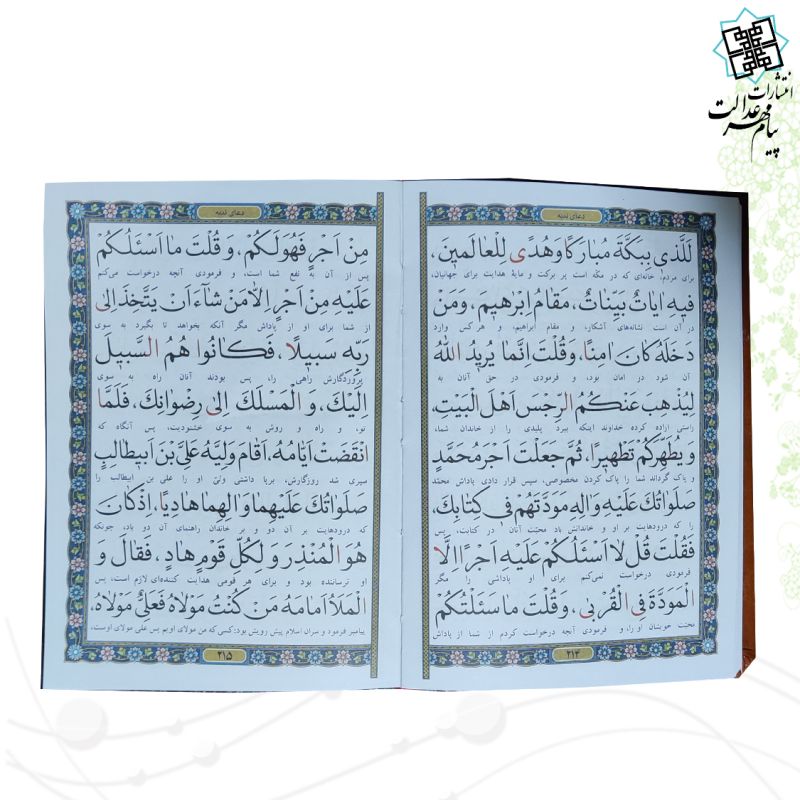 انتشارات
پیام مهر عدالت
دعای ندبه
لَلَّذی بِبَكَّةَ مُبارَكًا وَ هُدًی لِلْعالَمینَ،
برای مردم، خانه‌ای که در مکّه است پر برکت و مایهٔ هدایت برای جهانیان،
فیهِ ایاتٌ بَیِّناتٌ، مَقامُ اِبْرهیمَ، وَ مَنْ
در آن است نشانه‌های آشکار، و مقام ابراهیم، و هرکس وارد
دَخَلَهُ كانَ امِنًا، وَ قُلْتَ اِنَّما یُریدُ اللّٰهُ
آن شود در امان بود، و فرمودی در حق آنان به
لِیُذْهِبَ عَنْكُمُ الرِّجْسَ اَهْلَ الْبَیْتِ،
راستی اراده کرده خداوند اینکه ببرد پلیدی را از خاندان شما،
وَ یُطَهِّرَكُمْ تَطْهیرًا، ثُمَّ جَعَلْتَ اَجْرَ مُحَمَّدٍ
و پاک گرداند شما را پاک کردن مخصوصی، سپس قرار دادی پاداش محمّد
صَلَواتُكَ عَلَیْهِ وَ الِهِ مَوَدَّتَهُمْ فی كِتابِكَ،
را که درودهایت بر او و خاندانش باد محبّت آنان در کتابت، پس
فَقُلْتَ قُلْ لا اَسْئَلُكُمْ عَلَیْهِ اَجْرًا اِلَّا
فرمودی درخواست نمی‌کنم برای او پاداشی را مگر
الْمَوَدَّةَ فِی الْقُرْبی، وَ قُلْتَ ما سَئَلْتُكُمْ
محبّت خویشان او را، و فرمودی آنچه درخواست کردم از شما از پاداش
۲۱۴
دعای ندبه
مِنْ اَجْرٍ فَهُوَ لَكُمْ، وَ قُلْتَ ما اَسْئَلُكُمْ
پس از آن به نفع شما است، و فرمودی آنچه درخواست می‌کنم
عَلَیْهِ مِنْ اَجْرٍ اِلّا مَنْ شآءَ اَنْ یَتَّخِذَ اِلی
از شما برای او از پاداش مگر آنکه بخواهد تا بگیرد به سوی
رَبِّهِ سَبیلًا، فَكانُوا هُمُ السَّبیلَ
پروردگارش راهی را، پس بودند آنان راه به سوی
اِلَیْكَ، وَ الْمَسْلَكَ اِلی رِضْوانِكَ، فَلَمَّا
تو، و راه و روش به سوی خشنودیت، پس آنگاه که
انْقَضَتْ اَیّامُهُ، اَقامَ وَلِیَّهُ عَلِیَّ بْنَ اَبیطالِبٍ
سپری شد روزگارش، برپا داشتی ولیّ او را علی بن ابیطالب را
صَلَواتُكَ عَلَیْهِما وَ الِهِما هادِیًا، اِذْ كانَ
که درودهایت بر آن دو و بر خاندان راهنمای آن دو باد، چونکه
هُوَ الْمُنْذِرَ وَ لِكُلِّ قَوْمٍ هادٍ، فَقالَ وَ
او ترساننده بود و برای هر قومی هدایت کننده‌ای لازم است، پس
الْمَلَأُ اَمامَهُ مَنْ كُنْتُ مَوْلاهُ فَعَلِیٌّ مَوْلاهُ،
پیامبر فرمود و سران اسلام پیش رویش بود: کسی که من مولای اویم پس علی مولای اوست،
۲۱۵